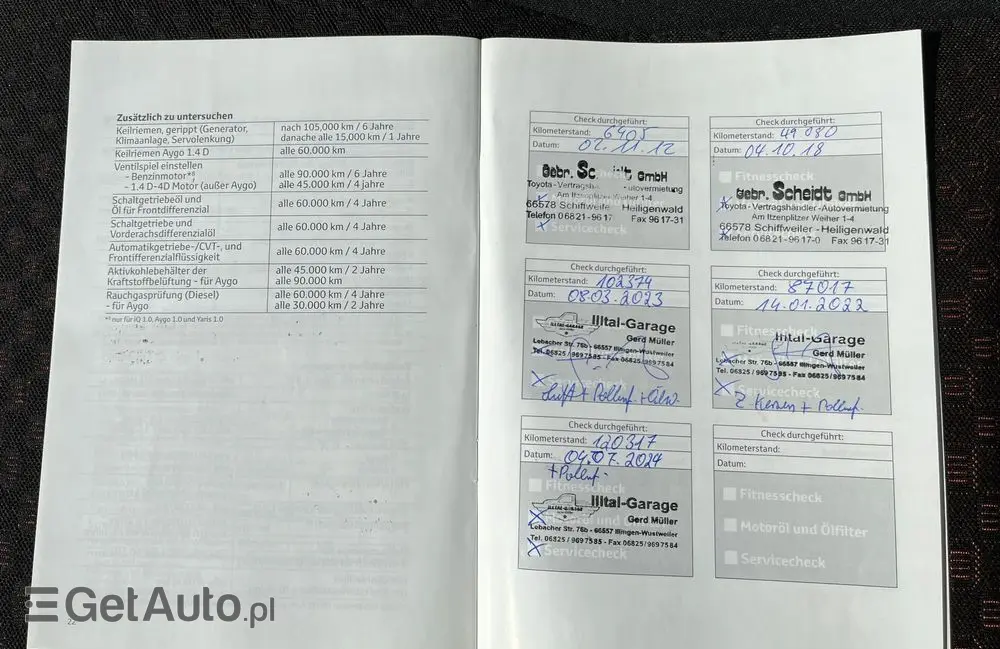 Zusätzlich zu untersuchen
Keilriemen, gerippt (Generator, Klimaanlage, Servolenkung)
nach 105,000 km / 6 Jahre
danache alle 15,000 km / 1 Jahre
Keilriemen Aygo 1.4 D
alle 60.000 km
Ventilspiel einstellen
- Benzinmotor*⁸
alle 90.000 km / 6 Jahre
- 1.4 D-4D Motor (außer Aygo)
alle 45.000 km / 4 jahre
Schaltgetriebeöl und
Öl für Frontdifferenzial
alle 60.000 km / 4 Jahre
Schaltgetriebe und
Vorderachsdifferenzialöl
alle 60.000 km / 4 Jahre
Automatikgetriebe-/CVT-, und
Frontifferenzialflüssigkeit
alle 60.000 km / 4 Jahre
Aktivkohlebehälter der
Kraftstoffbelüftung - für Aygo
alle 45.000 km / 2 Jahre
alle 90.000 km
Rauchgasprüfung (Diesel)
- für Aygo
alle 60.000 km / 4 Jahre
alle 30.000 km / 2 Jahre
nur für iQ 1.0, Aygo 1.0 und Yaris 1.0
22
Check durchgeführt:
Kilometerstand: 6405
Datum: 02.11.12
Gebr. Sc idt GmbH
Toyota-Vertragsh utovermietung
Am Itzenplitzer Weiher 1-4
66578 Schiffweile Heiligenwald
Telefon 06821-9617 Fax 9617-31
Servicecheck
Check durchgeführt:
Kilometerstand: 49080
Datum: 04.10.18
Fitnesscheck
Gebr. Scheidt GmbH
Toyota-Vertragshändler-Autovermietung
Am Itzenplitzer Weiher 1-4
66578 Schiffweiler-Heiligenwald
Telefon 06821-9617-0 Fax 9617-31
Check durchgeführt:
Kilometerstand: 102374
Datum: 08.03.2023
Illtal-Garage
Gerd Müller
Lebacher Str. 76b - 66557 Illingen-Wustweiler
Tel. 06825/9697585 - Fax 06825/9697584
Luft + Pollenf. + Ölw.
Check durchgeführt:
Kilometerstand: 87017
Datum: 14.01.2022
Fitnesscheck
Illtal-Garage
Gerd Müller
Lebacher Str. 76b - 66557 Illingen-Wustweiler
Tel. 06825/9697585 - Fax 06825/9697584
Servicecheck
Z Kerzen + Pollenf.
Check durchgeführt:
Kilometerstand: 120317
Datum: 04.07.2024
+ Pollenf.
Fitnesscheck
Illtal-Garage
Gerd Müller
Lebacher Str. 76b - 66557 Illingen-Wustweiler
Tel. 06825/9697585 - Fax 06825/9697584
Servicecheck
Check durchgeführt:
Kilometerstand:
Datum:
Fitnesscheck
Motoröl und Ölfilter
Servicecheck
GetAuto.pl